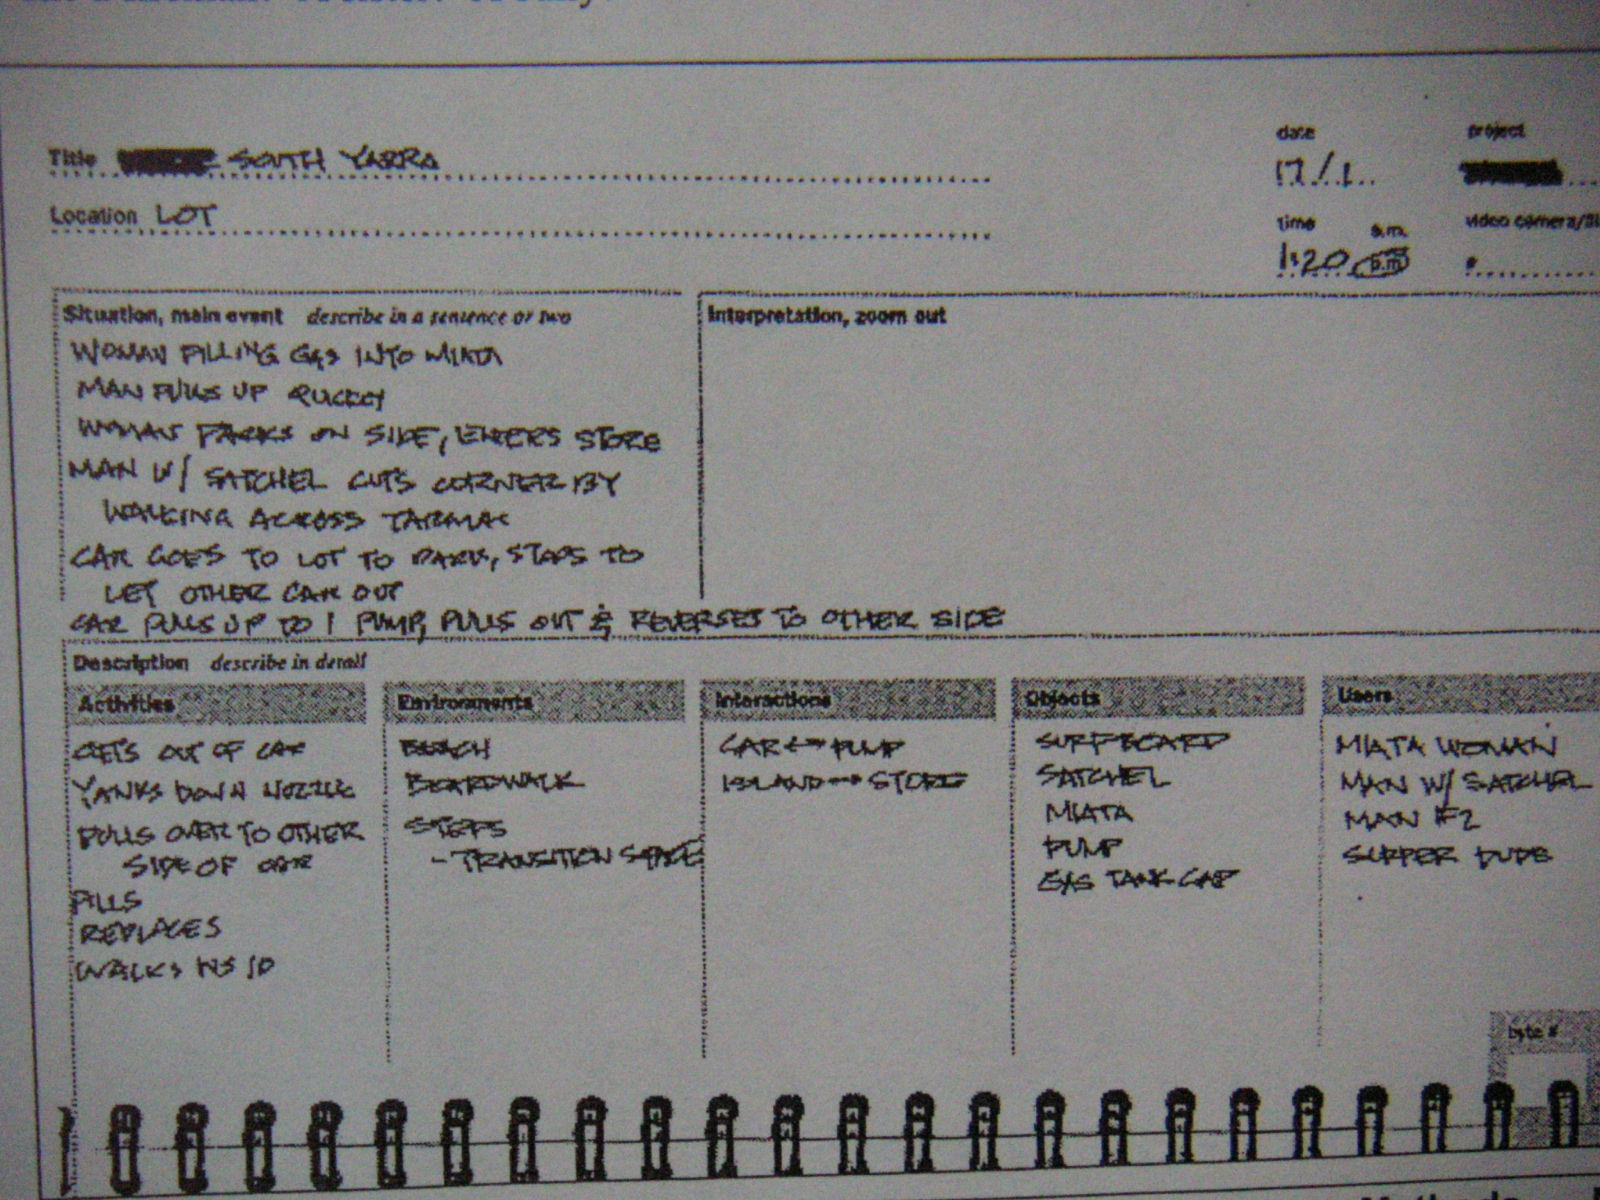 Title SOUTH YARRA
date
project
17/1
Location LOT
time a.m.
video camera/
1:20 p.m.
#
Situation, main event describe in a sentence or two
WOMAN FILLING GAS INTO MIATA
MAN PULLS UP QUICKLY
WOMAN PARKS ON SIDE, ENTERS STORE
MAN W/ SATCHEL CUTS CORNER BY
WALKING ACROSS TARMAC
CAR GOES TO LOT TO PARK, STOPS TO
LET OTHER CAR OUT
CAR PULLS UP TO 1 PUMP, PULLS OUT & REVERSES TO OTHER SIDE
Interpretation, zoom out
Description describe in detail
Activities
GETS OUT OF CAR
YANKS DOWN NOZZLE
PULLS OVER TO OTHER
SIDE OF CAR
FILLS
REPLACES
WALKS INSID
Environments
BEACH
BOARDWALK
STEPS
- TRANSITION SPACE
Interactions
CAR ↔ PUMP
ISLAND ↔ STORE
Objects
SURFBOARD
SATCHEL
MIATA
PUMP
GAS TANK CAP
Users
MIATA WOMAN
MAN W/ SATCHEL
MAN #2
SURFER DUDE
byte #